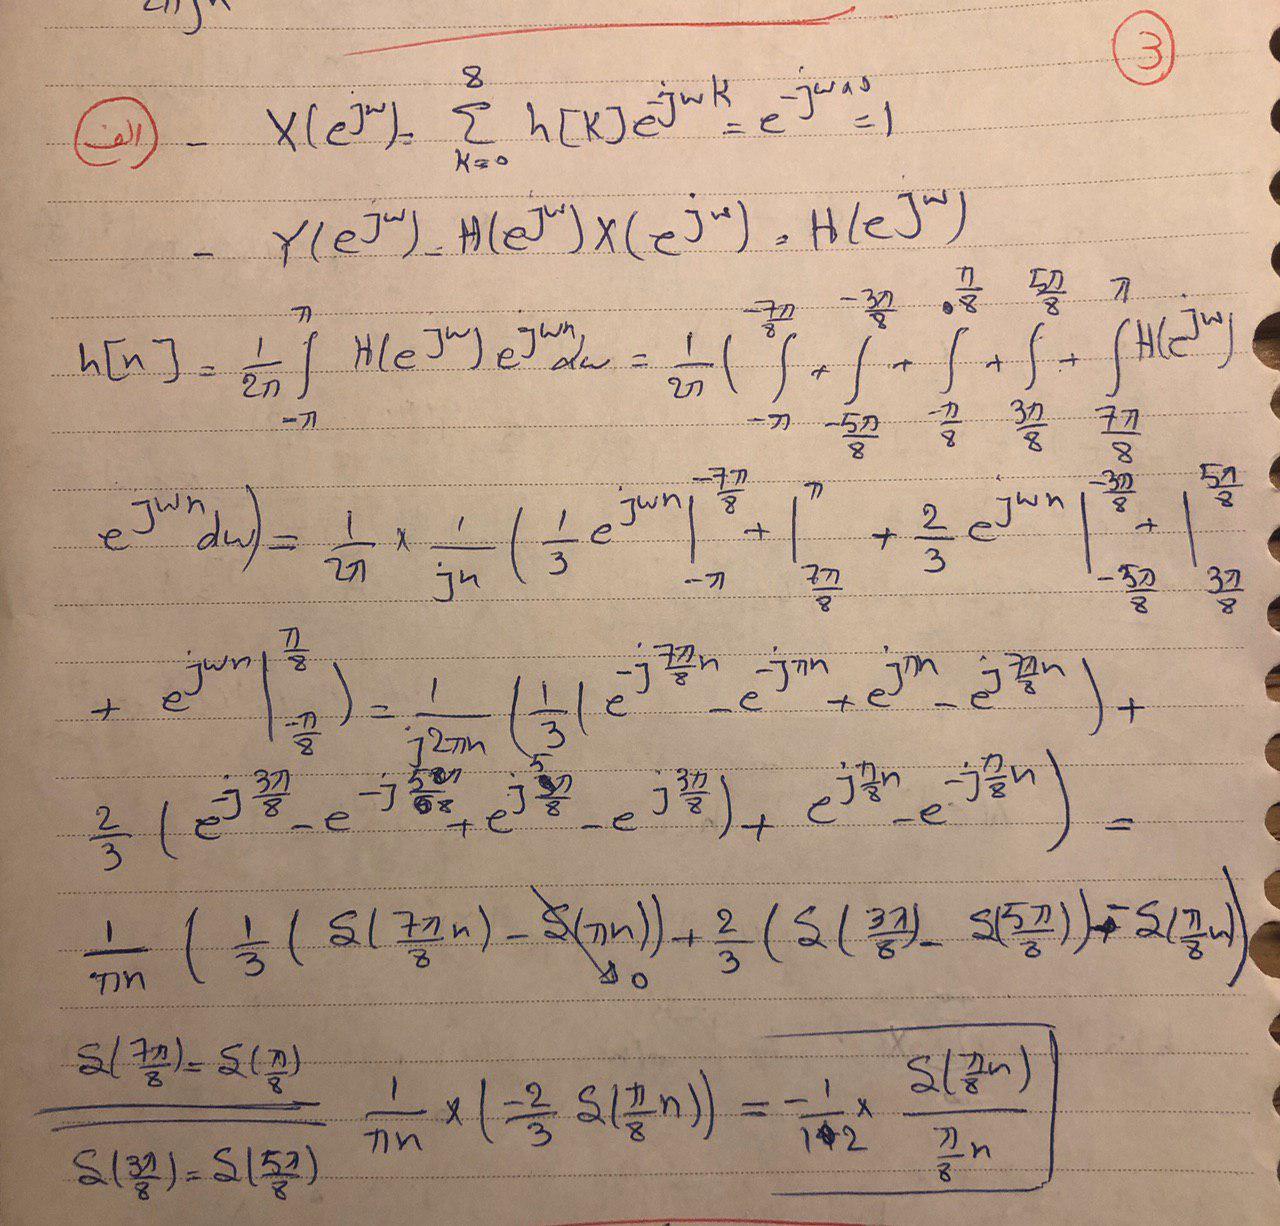 2πjn
3
الف - X(e^{jω}) = Σ_{k=0}^{8} h[k]e^{-jωk} = e^{-jω×0} = 1
- Y(e^{jω}) = H(e^{jω})X(e^{jω}) = H(e^{jω})
h[n] = 1/2π ∫_{-π}^{π} H(e^{jω})e^{jωn}dω = 1/2π ( ∫_{-π}^{-7π/8} + ∫_{-5π/8}^{-3π/8} + ∫_{-π/8}^{π/8} + ∫_{3π/8}^{5π/8} + ∫_{7π/8}^{π} H(e^{jω})
e^{jωn}dω) = 1/2π × 1/jn ( 1/3 e^{jωn} |_{-π}^{-7π/8} + |_{7π/8}^{π} + 2/3 e^{jωn} |_{-5π/8}^{-3π/8} + |_{3π/8}^{5π/8}
+ e^{jωn} |_{-π/8}^{π/8} ) = 1/j2πn ( 1/3 ( e^{-j7π/8 n} - e^{-jπn} + e^{jπn} - e^{j7π/8 n} ) +
2/3 ( e^{-j3π/8} - e^{-j5π/8} + e^{j5π/8} - e^{j3π/8} ) + e^{jπ/8 n} - e^{-jπ/8 n} ) =
1/πn ( 1/3 ( S(7π/8 n) - S(πn) ) → 0 + 2/3 ( S(3π/8) - S(5π/8) ) - S(π/8 n) )
S(7π/8) = S(π/8)
S(3π/8) = S(5π/8)
1/πn × ( -2/3 S(π/8 n) ) = -1/12 × S(π/8 n) / π/8 n